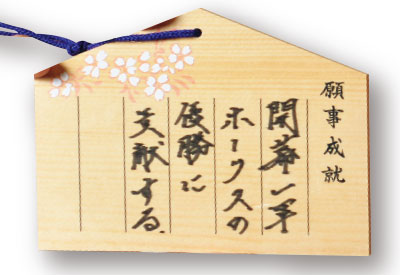 願事成就
開幕一軍
ホークスの
優勝に
貢献する